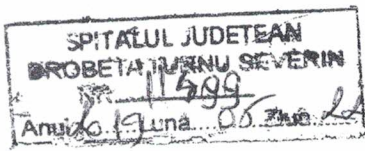 SPITALUL JUDETEAN
DROBETA TURNU SEVERIN
NR. 11599
Anul 2019 Luna 06 Ziua